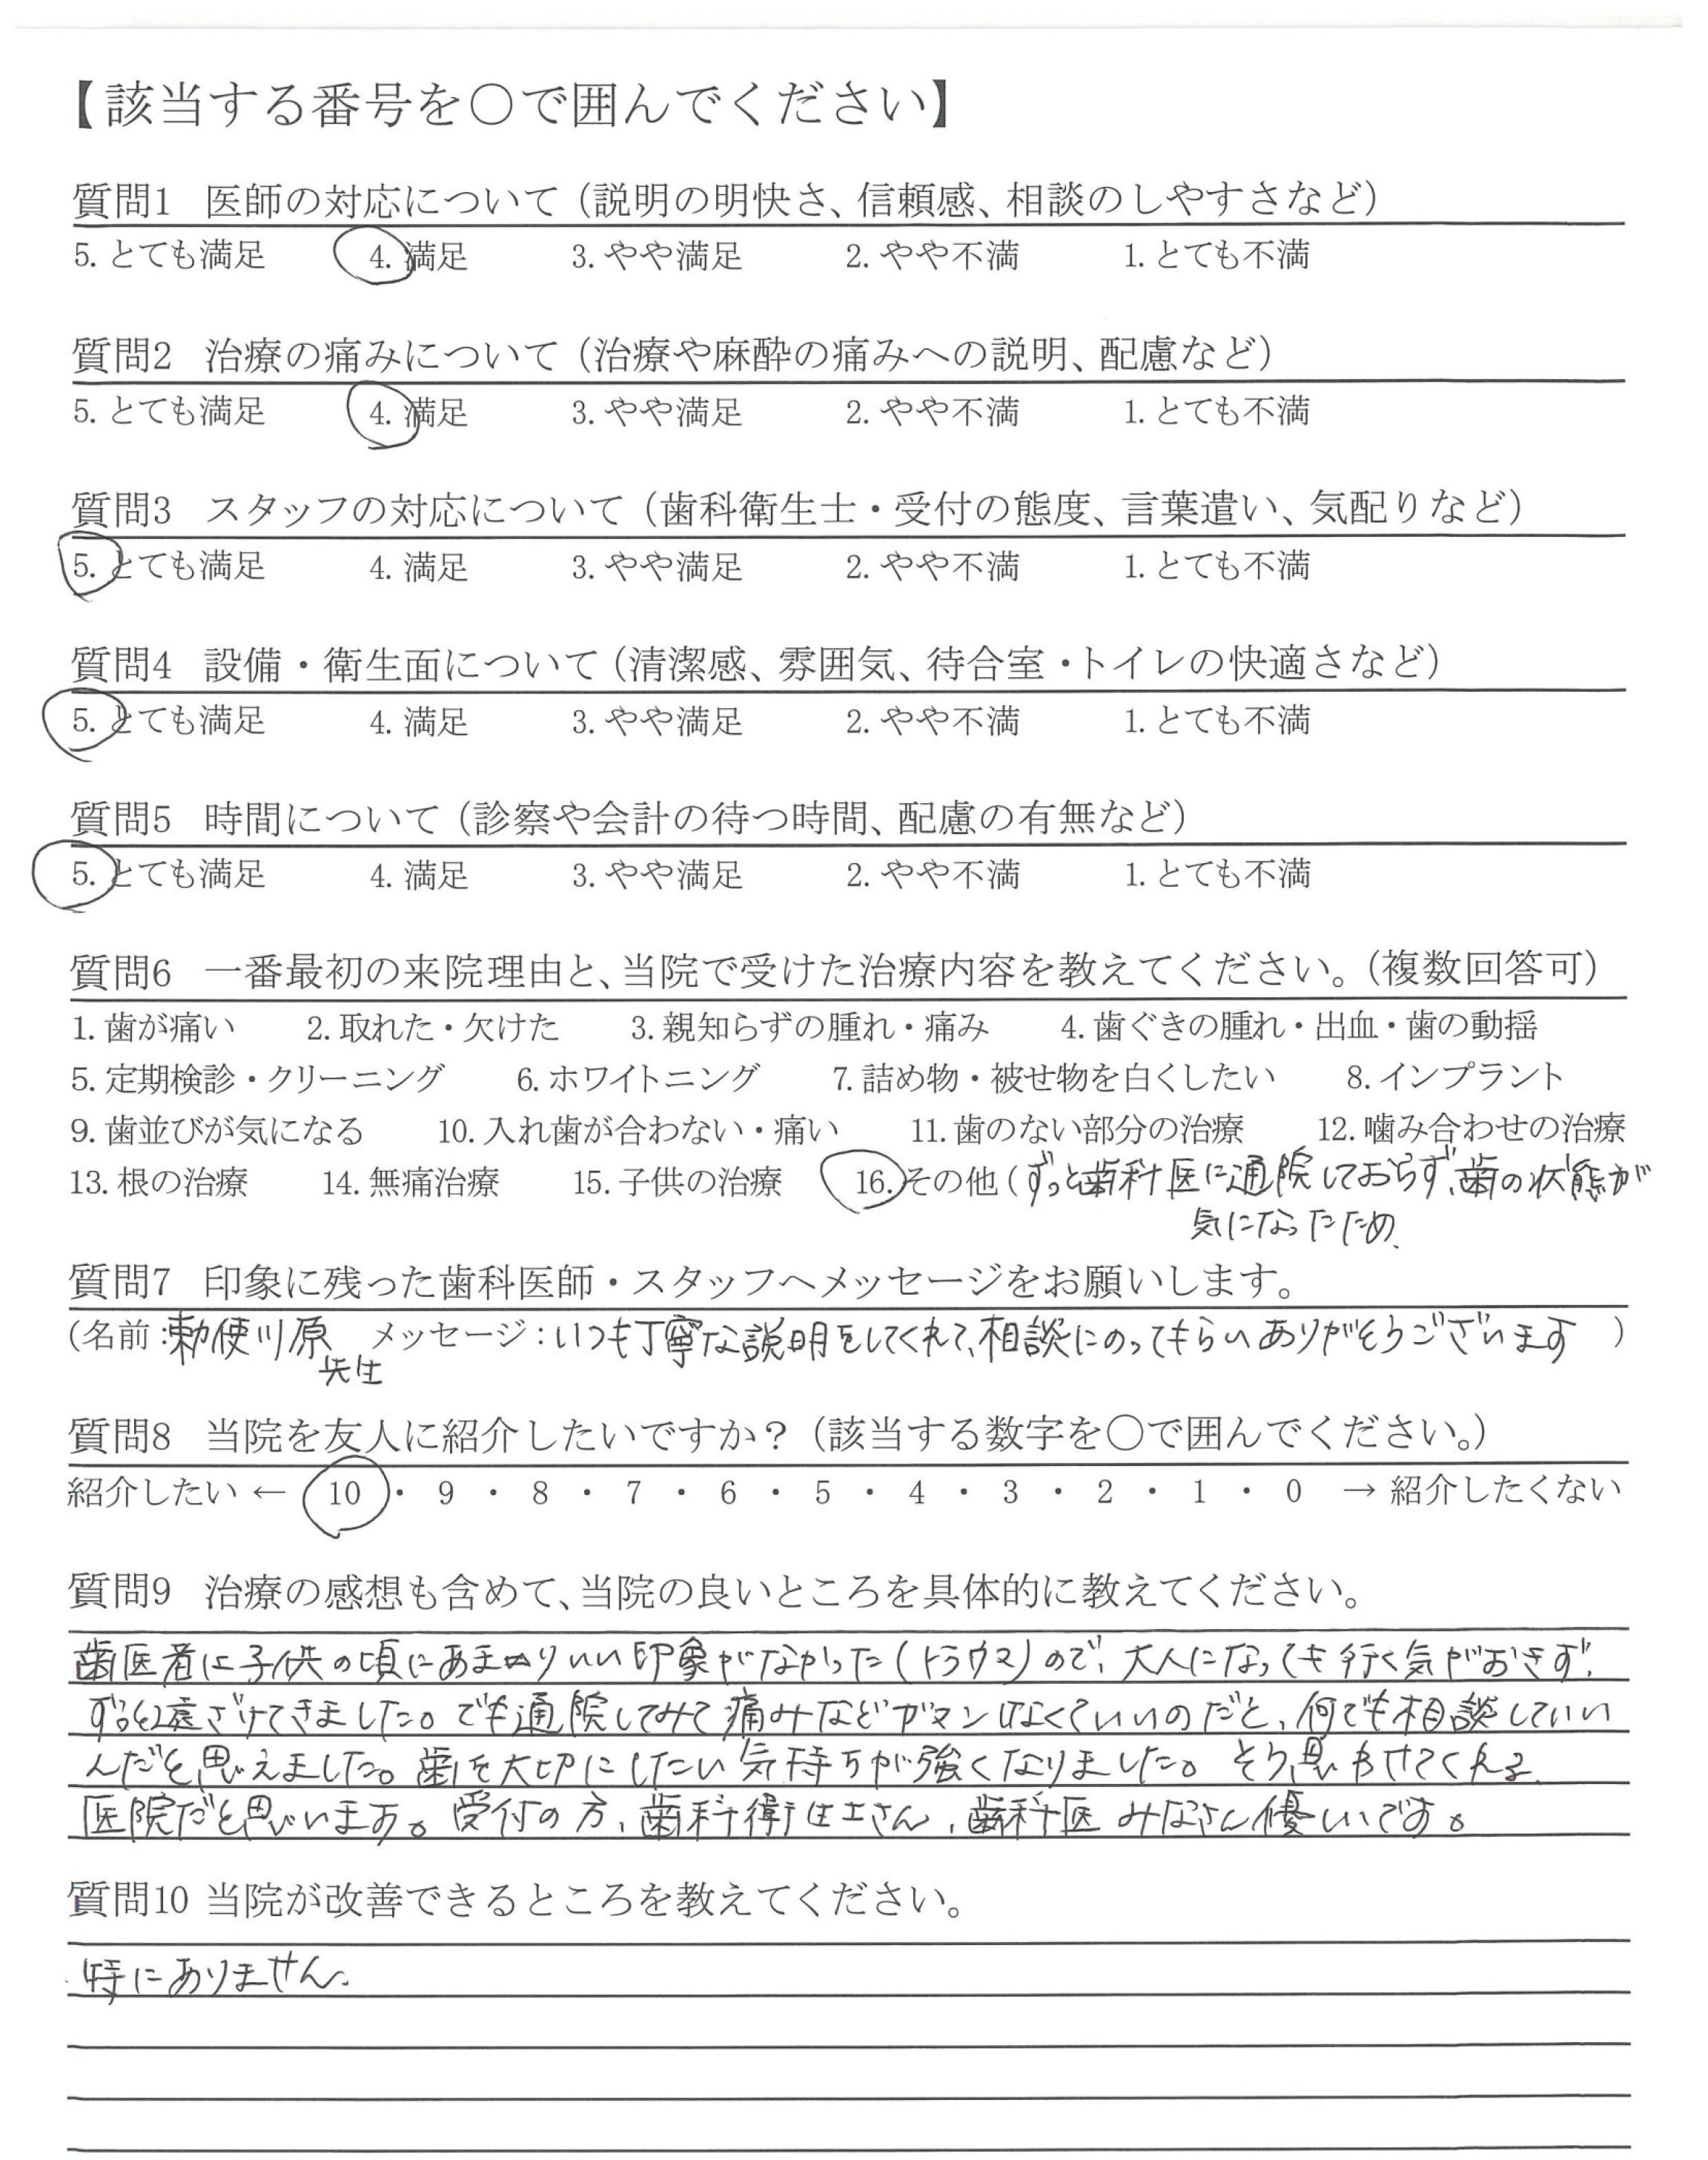 【該当する番号を〇で囲んでください】
質問1 医師の対応について（説明の明快さ、信頼感、相談のしやすさなど）
5. とても満足 4. 満足 3. やや満足 2. やや不満 1. とても不満
質問2 治療の痛みについて（治療や麻酔の痛みへの説明、配慮など）
5. とても満足 4. 満足 3. やや満足 2. やや不満 1. とても不満
質問3 スタッフの対応について（歯科衛生士・受付の態度、言葉遣い、気配りなど）
5. とても満足 4. 満足 3. やや満足 2. やや不満 1. とても不満
質問4 設備・衛生面について（清潔感、雰囲気、待合室・トイレの快適さなど）
5. とても満足 4. 満足 3. やや満足 2. やや不満 1. とても不満
質問5 時間について（診察や会計の待つ時間、配慮の有無など）
5. とても満足 4. 満足 3. やや満足 2. やや不満 1. とても不満
質問6 一番最初の来院理由と、当院で受けた治療内容を教えてください。（複数回答可）
1. 歯が痛い 2. 取れた・欠けた 3. 親知らずの腫れ・痛み 4. 歯ぐきの腫れ・出血・歯の動揺
5. 定期検診・クリーニング 6. ホワイトニング 7. 詰め物・被せ物を白くしたい 8. インプラント
9. 歯並びが気になる 10. 入れ歯が合わない・痛い 11. 歯のない部分の治療 12. 噛み合わせの治療
13. 根の治療 14. 無痛治療 15. 子供の治療 16. その他（ずっと歯科医に通院しておらず、歯の状態が
気になったため、
質問7 印象に残った歯科医師・スタッフへメッセージをお願いします。
（名前：勅使川原 メッセージ：いつも丁寧な説明をしてくれて、相談にのってもらいありがとうございます ）
先生
質問8 当院を友人に紹介したいですか？（該当する数字を〇で囲んでください。）
紹介したい ← 10 ・ 9 ・ 8 ・ 7 ・ 6 ・ 5 ・ 4 ・ 3 ・ 2 ・ 1 ・ 0 → 紹介したくない
質問9 治療の感想も含めて、当院の良いところを具体的に教えてください。
歯医者に子供の頃にあまりいい印象がなかった（トラウマ）ので、大人になっても行く気がおきず、
ずっと遠ざけてきました。でも通院してみて痛みなどガマンしなくていいのだと、何でも相談していい
んだと思えました。歯を大切にしたい気持ちが強くなりました。そう思わせてくれる
医院だと思います。受付の方、歯科衛生士さん、歯科医みなさん優しいです。
質問10 当院が改善できるところを教えてください。
特にありません。